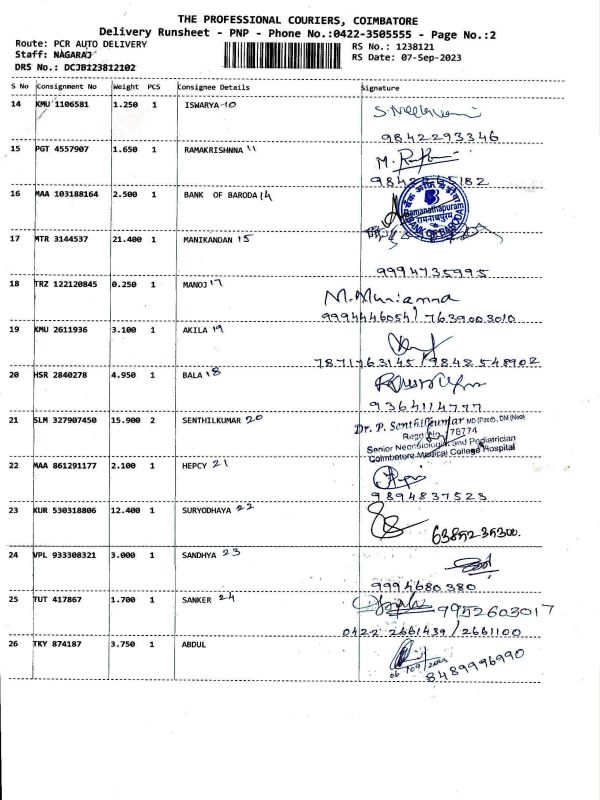 THE PROFESSIONAL COURIERS, COIMBATORE
Delivery Runsheet - PNP - Phone No.:0422-3505555 - Page No.:2
Route: PCR AUTO DELIVERY RS No.: 1238121
Staff: NAGARAJ RS Date: 07-Sep-2023
DRS No.: DCJB123812102
S No Consignment No Weight PCS Consignee Details Signature
14 KMU 1106581 1.250 1 ISWARYA 10
9842293346
15 PGT 4557907 1.650 1 RAMAKRISHNNA 11
16 MAA 103188164 2.500 1 BANK OF BARODA 14
Ramanathapuram
BANK OF BARODA
17 MTR 3144537 21.400 1 MANIKANDAN 15
9994735995
18 TRZ 122120845 0.250 1 MANOJ 17
M. Munianna
9994446054 / 7639003010
19 KMU 2611936 3.100 1 AKILA 19
7871763145 / 9842548902
20 HSR 2840278 4.950 1 BALA 18
9364114777
21 SLM 327907450 15.900 2 SENTHILKUMAR 20
Dr. P. Senthilkumar MD (Paed), DM (Neo)
Regd. No. 78774
Senior Neonatologist and Pediatrician
Coimbatore Medical College Hospital
22 MAA 861291177 2.100 1 HEPCY 21
9894837523
23 KUR 530318806 12.400 1 SURYODHAYA 22
24 VPL 933308321 3.000 1 SANDHYA 23
9994680380
25 TUT 417867 1.700 1 SANKER 24
9952603017
0422 2661439 / 2661100
26 TKY 874187 3.750 1 ABDUL
8489996990